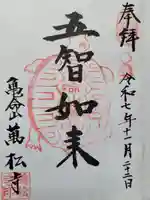 奉拝
令和七年十一月二十三日
五智如来
亀命山萬松寺